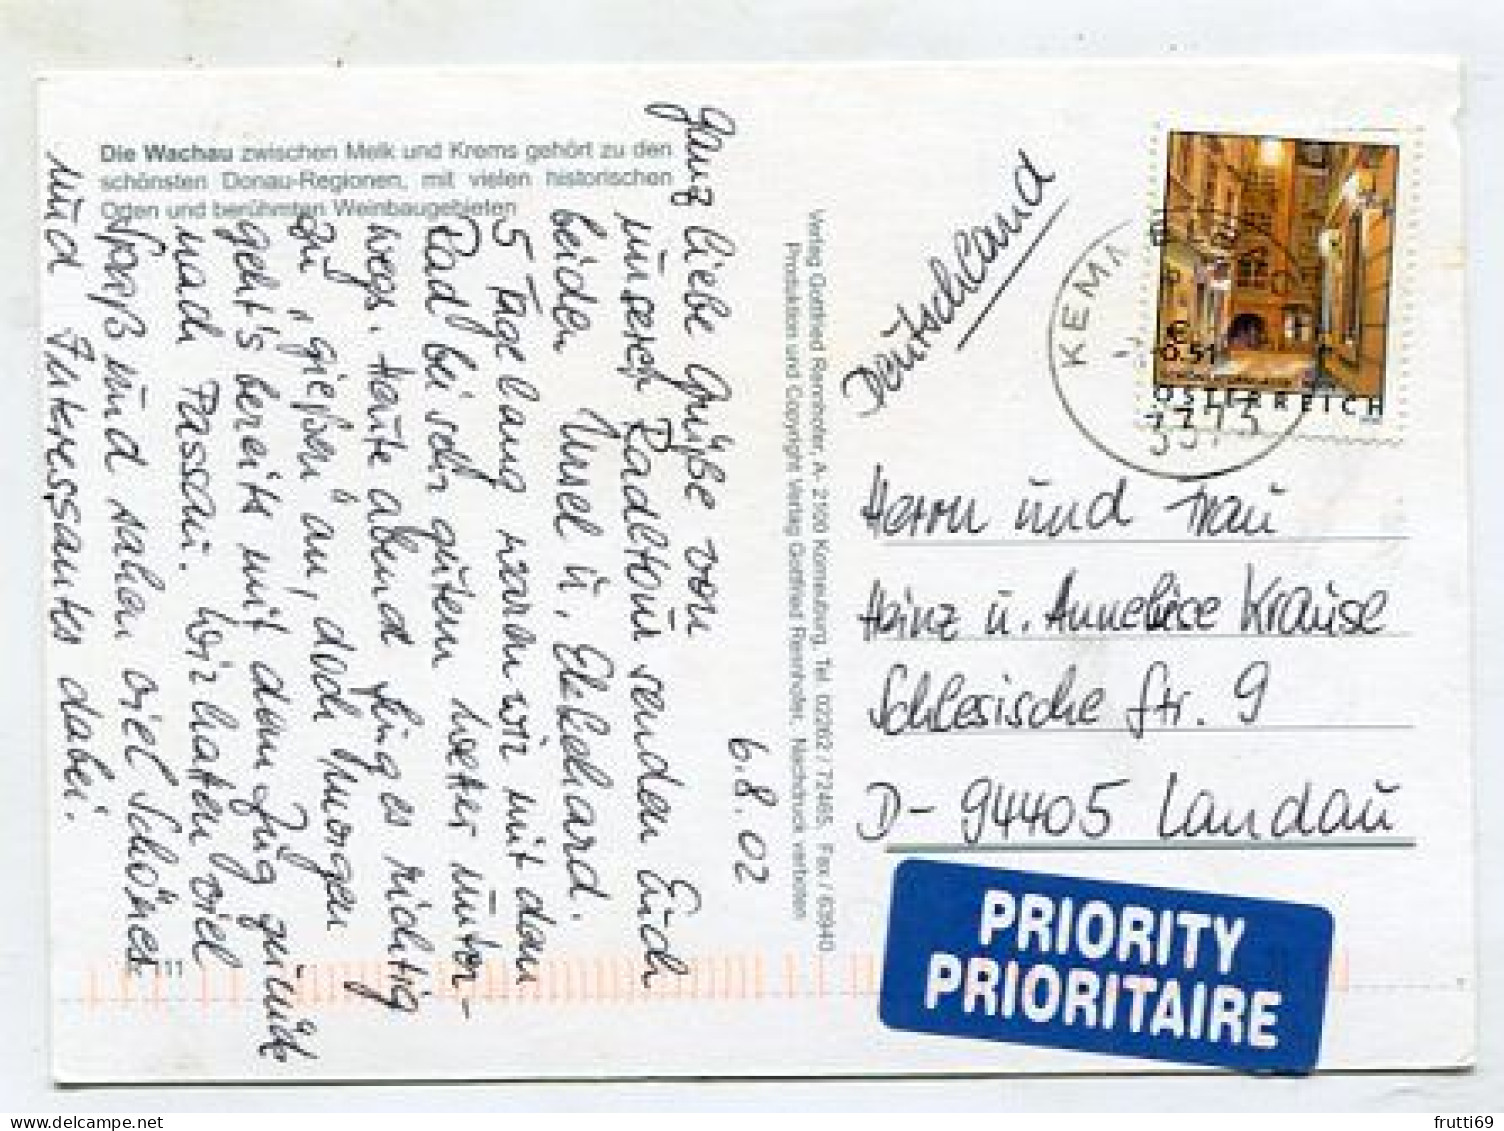 Die Wachau zwischen Melk und Krems gehört zu den
schönsten Donau-Regionen, mit vielen historischen
Orten und berühmten Weinbaugebieten
6.8.02
Ganz liebe Grüße von
unserer Radltour senden Euch
beiden Ursel u. Ekkehard.
5 Tage lang waren wir mit dem
Rad bei sehr gutem Wetter unter-
wegs. Heute abend fing es richtig
zu "gießen" an, doch morgen
geht's bereits mit dem Zug zurück
nach Passau. Wir hatten viel
Spaß und sahen viel Schönes
und Interessantes dabei.
11
Verlag Gottfried Rennhofer, A- 2100 Korneuburg, Tel. 02262 / 72465, Fax: / 63940
Produktion und Copyright Verlag Gottfried Rennhofer, Nachdruck verboten
Deutschland
KEMM
3373
€ 0.51
ÖSTERREICH
Herrn und Frau
Heinz u. Anneliese Krause
Schlesische Str. 9
D- 94405 Landau
PRIORITY
PRIORITAIRE
frutti69